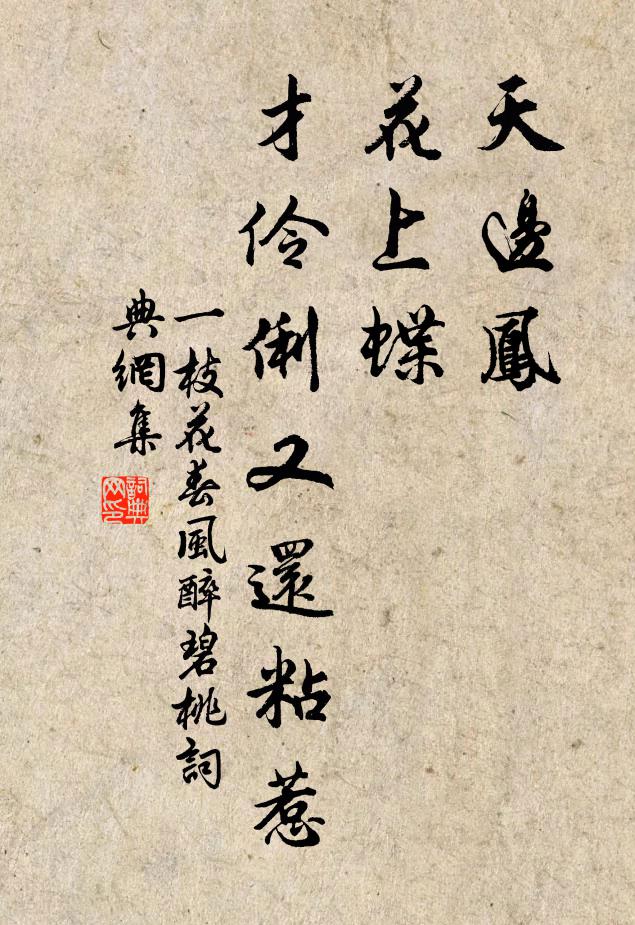 天邊鳳
花上蝶
才伶俐又還粘惹
一枝花春風醉碧桃詞
典網集
詞典網印